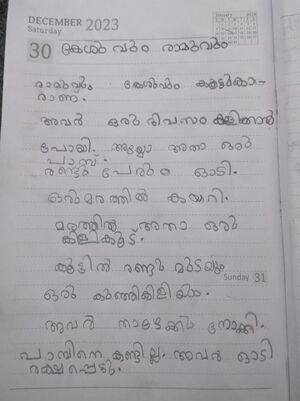 DECEMBER 2023
Saturday
30 കേശു വും രാമുവും
രാമുവും കേശുവും കൂട്ടുകാ-
രാണ്.
അവർ ഒരു ദിവസം കളിക്കാൻ
പോയി. അയ്യോ അതാ ഒരു
പാമ്പ്.
രണ്ടു പേരും ഓടി.
ഒരു മരത്തിൽ കയറി.
മരത്തിൽ അതാ ഒരു
കിളികൂട്.
കൂട്ടിൽ രണ്ടു മുട്ടയും
Sunday 31
ഒരു കുഞ്ഞികിളിയും.
അവർ താഴേക്ക് നോക്കി.
പാമ്പിനെ കണ്ടില്ല. അവർ ഓടി
രക്ഷപ്പെട്ടു.